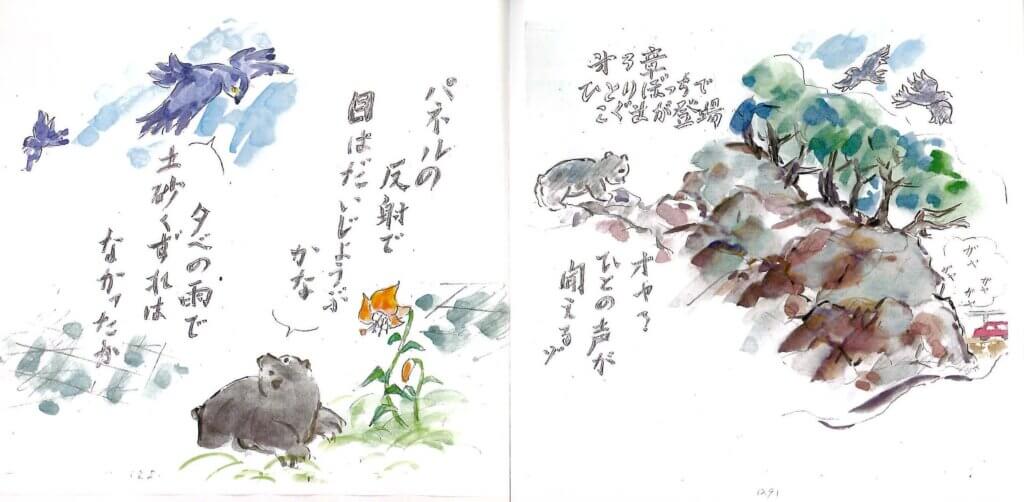 パネルの
反射で
目はだいじょうぶ
かな
夕べの雨で
土砂くずれは
なかったか
才3章
ひとりぼっちで
こぐまが登場
オヤ?
ひとの声が
聞えるゾ
129